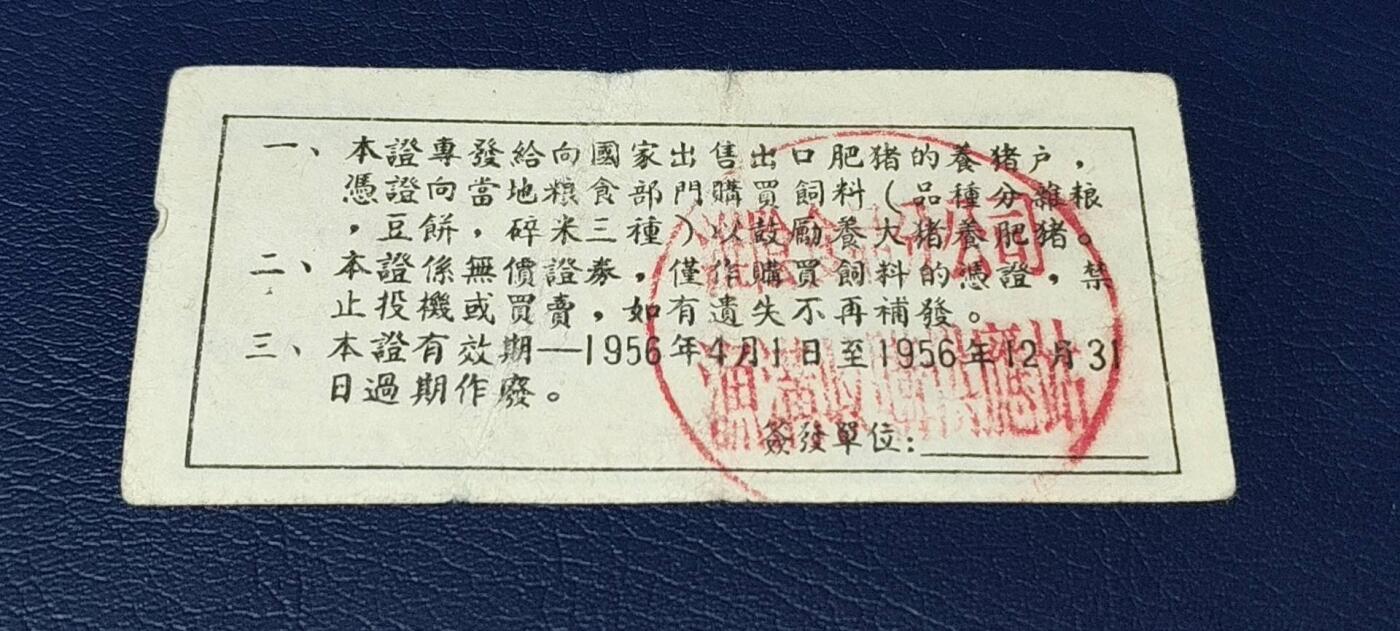 一、本證專發給向國家出售出口肥猪的養猪户，
憑證向當地粮食部門購買飼料（品種分雜粮
，豆餅，碎米三種）以鼓勵養大猪養肥猪。
二、本證係無價證券，僅作購買飼料的憑證，禁
止投機或買賣，如有遺失不再補發。
三、本證有效期—1956年4月1日至1956年12月31
日過期作廢。
簽發單位：
公司